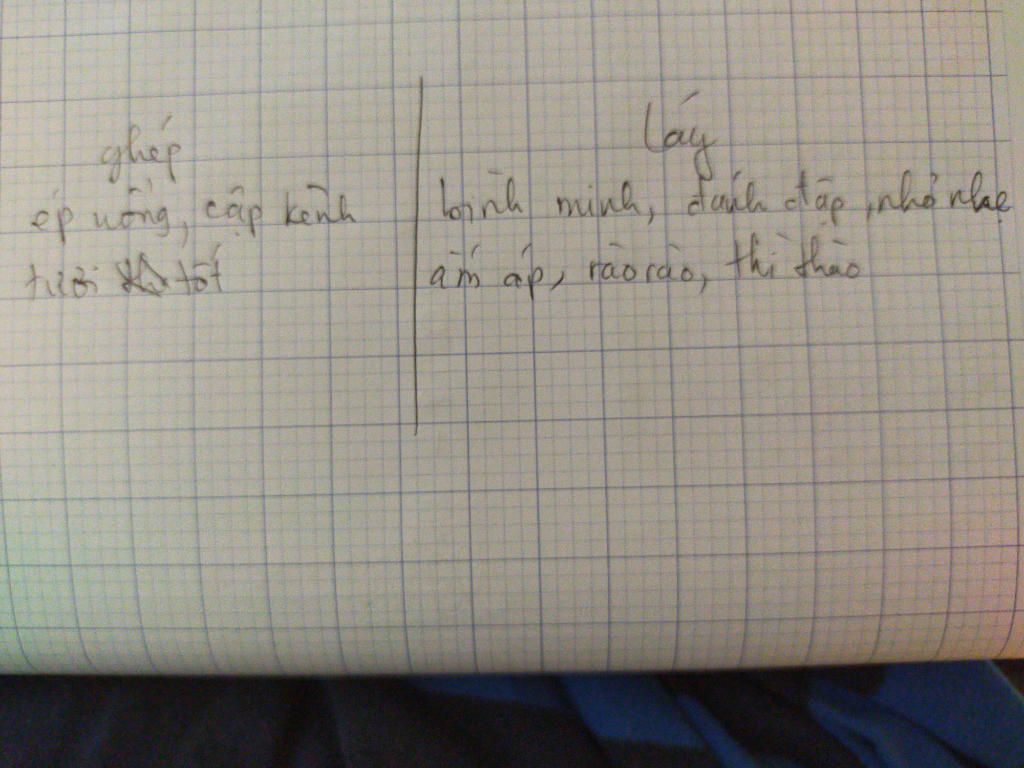 ghép
láy
ép uổng, cập kênh
tươi tốt
bình minh, đánh đập, nhỏ nhẹ
ấm áp, rào rào, thì thào